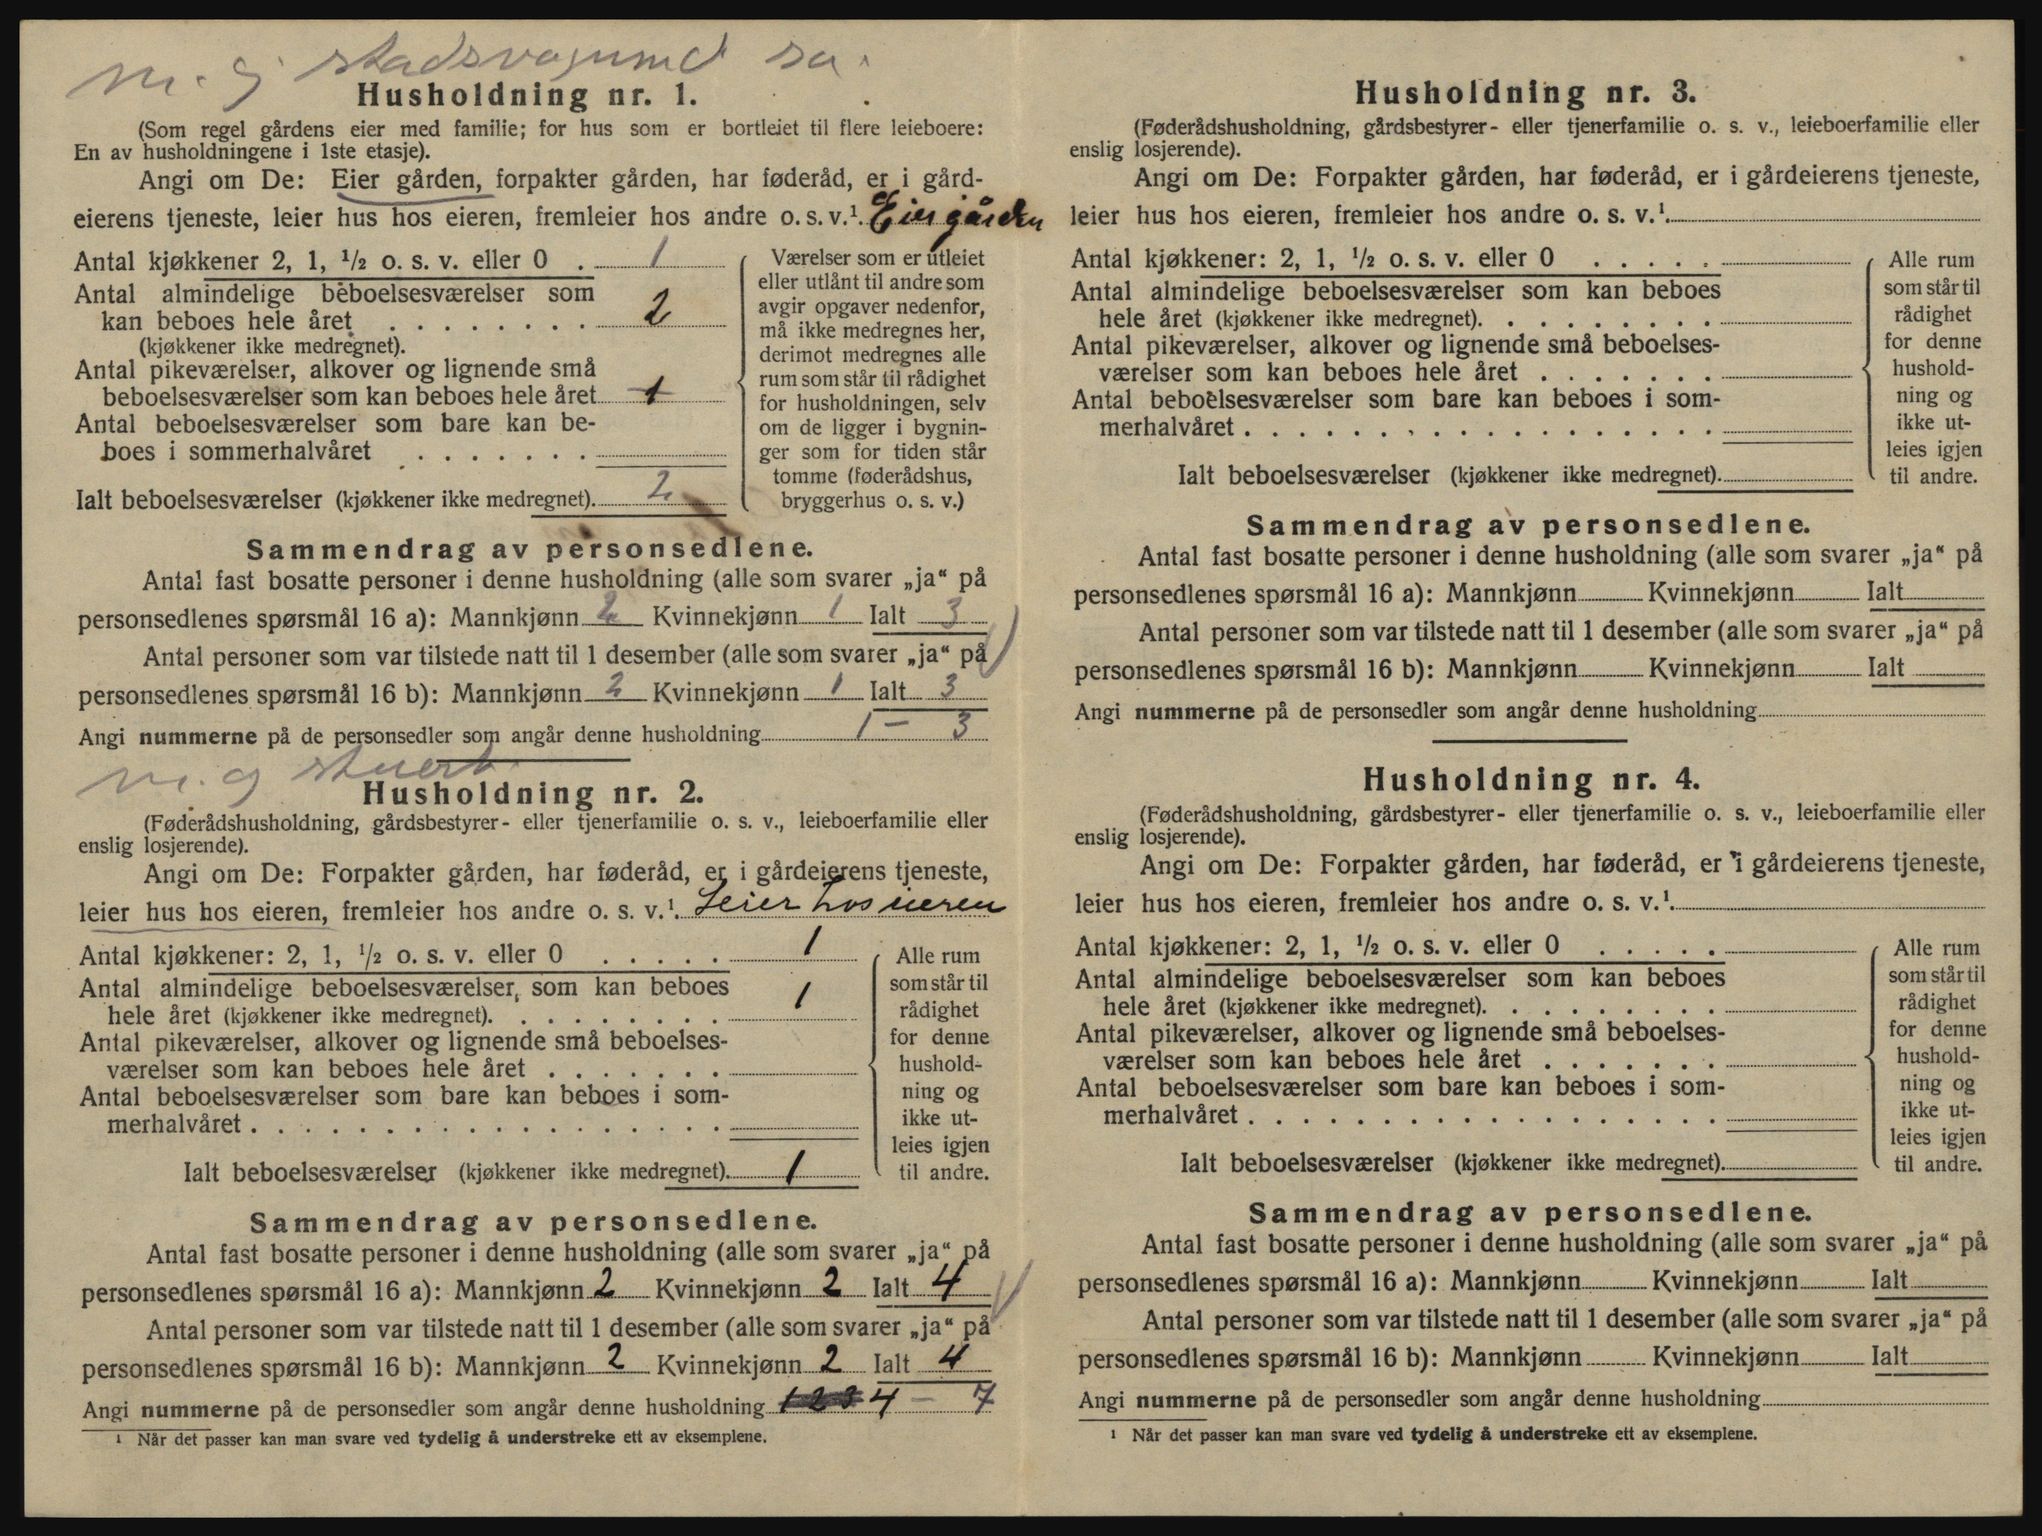 m. g stadsvognmd sa.
Husholdning nr. 1.
(Som regel gårdens eier med familie; for hus som er bortleiet til flere leieboere:
En av husholdningene i 1ste etasje).
Angi om De: Eier gården, forpakter gården, har føderåd, er i gård-
eierens tjeneste, leier hus hos eieren, fremleier hos andre o. s. v.¹ Eier gården
Antal kjøkkener 2, 1, ½ o. s. v. eller 0 . 1
Antal almindelige beboelsesværelser som
kan beboes hele året . . . . . . . . 2
(kjøkkener ikke medregnet).
Antal pikeværelser, alkover og lignende små
beboelsesværelser som kan beboes hele året 1
Antal beboelsesværelser som bare kan be-
boes i sommerhalvåret . . . . . . .
Ialt beboelsesværelser (kjøkkener ikke medregnet). 2
Værelser som er utleiet
eller utlånt til andre som
avgir opgaver nedenfor,
må ikke medregnes her,
derimot medregnes alle
rum som står til rådighet
for husholdningen, selv
om de ligger i bygnin-
ger som for tiden står
tomme (føderådshus,
bryggerhus o. s. v.)
Sammendrag av personsedlene.
Antal fast bosatte personer i denne husholdning (alle som svarer „ja“ på
personsedlenes spørsmål 16 a): Mannkjønn 2 Kvinnekjønn 1 Ialt 3
Antal personer som var tilstede natt til 1 desember (alle som svarer „ja“ på
personsedlenes spørsmål 16 b): Mannkjønn 2 Kvinnekjønn 1 Ialt 3
Angi nummerne på de personsedler som angår denne husholdning 1 – 3
m. g stuert.
Husholdning nr. 2.
(Føderådshusholdning, gårdsbestyrer- eller tjenerfamilie o. s. v., leieboerfamilie eller
enslig losjerende).
Angi om De: Forpakter gården, har føderåd, er i gårdeierens tjeneste,
leier hus hos eieren, fremleier hos andre o. s. v.¹. Leier hos eieren
Antal kjøkkener: 2, 1, ½ o. s. v. eller 0 . . . . . 1
Antal almindelige beboelsesværelser, som kan beboes
hele året (kjøkkener ikke medregnet). . . . . . . . . 1
Antal pikeværelser, alkover og lignende små beboelses-
værelser som kan beboes hele året . . . . . . .
Antal beboelsesværelser som bare kan beboes i som-
merhalvåret . . . . . . . . . . . . . . . . . .
Ialt beboelsesværelser (kjøkkener ikke medregnet). 1
Alle rum
som står til
rådighet
for denne
hushold-
ning og
ikke ut-
leies igjen
til andre.
Sammendrag av personsedlene.
Antal fast bosatte personer i denne husholdning (alle som svarer „ja“ på
personsedlenes spørsmål 16 a): Mannkjønn 2 Kvinnekjønn 2 Ialt 4
Antal personer som var tilstede natt til 1 desember (alle som svarer „ja“ på
personsedlenes spørsmål 16 b): Mannkjønn 2 Kvinnekjønn 2 Ialt 4
Angi nummerne på de personsedler som angår denne husholdning 1 2 3 4 – 7
¹ Når det passer kan man svare ved tydelig å understreke ett av eksemplene.
Husholdning nr. 3.
(Føderådshusholdning, gårdsbestyrer- eller tjenerfamilie o. s. v., leieboerfamilie eller
enslig losjerende).
Angi om De: Forpakter gården, har føderåd, er i gårdeierens tjeneste,
leier hus hos eieren, fremleier hos andre o. s. v.¹.
Antal kjøkkener: 2, 1, ½ o. s. v. eller 0 . . . . .
Antal almindelige beboelsesværelser som kan beboes
hele året (kjøkkener ikke medregnet). . . . . . . . .
Antal pikeværelser, alkover og lignende små beboelses-
værelser som kan beboes hele året . . . . . . .
Antal beboelsesværelser som bare kan beboes i som-
merhalvåret . . . . . . . . . . . . . . . . . .
Ialt beboelsesværelser (kjøkkener ikke medregnet).
Alle rum
som står til
rådighet
for denne
hushold-
ning og
ikke ut-
leies igjen
til andre.
Sammendrag av personsedlene.
Antal fast bosatte personer i denne husholdning (alle som svarer „ja“ på
personsedlenes spørsmål 16 a): Mannkjønn Kvinnekjønn Ialt
Antal personer som var tilstede natt til 1 desember (alle som svarer „ja“ på
personsedlenes spørsmål 16 b): Mannkjønn Kvinnekjønn Ialt
Angi nummerne på de personsedler som angår denne husholdning
Husholdning nr. 4.
(Føderådshusholdning, gårdsbestyrer- eller tjenerfamilie o. s. v., leieboerfamilie eller
enslig losjerende).
Angi om De: Forpakter gården, har føderåd, er i gårdeierens tjeneste,
leier hus hos eieren, fremleier hos andre o. s. v.¹.
Antal kjøkkener: 2, 1, ½ o. s. v. eller 0 . . . . .
Antal almindelige beboelsesværelser som kan beboes
hele året (kjøkkener ikke medregnet). . . . . . . . .
Antal pikeværelser, alkover og lignende små beboelses-
værelser som kan beboes hele året . . . . . . .
Antal beboelsesværelser som bare kan beboes i som-
merhalvåret . . . . . . . . . . . . . . . . . .
Ialt beboelsesværelser (kjøkkener ikke medregnet).
Alle rum
som står til
rådighet
for denne
hushold-
ning og
ikke ut-
leies igjen
til andre.
Sammendrag av personsedlene.
Antal fast bosatte personer i denne husholdning (alle som svarer „ja“ på
personsedlenes spørsmål 16 a): Mannkjønn Kvinnekjønn Ialt
Antal personer som var tilstede natt til 1 desember (alle som svarer „ja“ på
personsedlenes spørsmål 16 b): Mannkjønn Kvinnekjønn Ialt
Angi nummerne på de personsedler som angår denne husholdning
¹ Når det passer kan man svare ved tydelig å understreke ett av eksemplene.